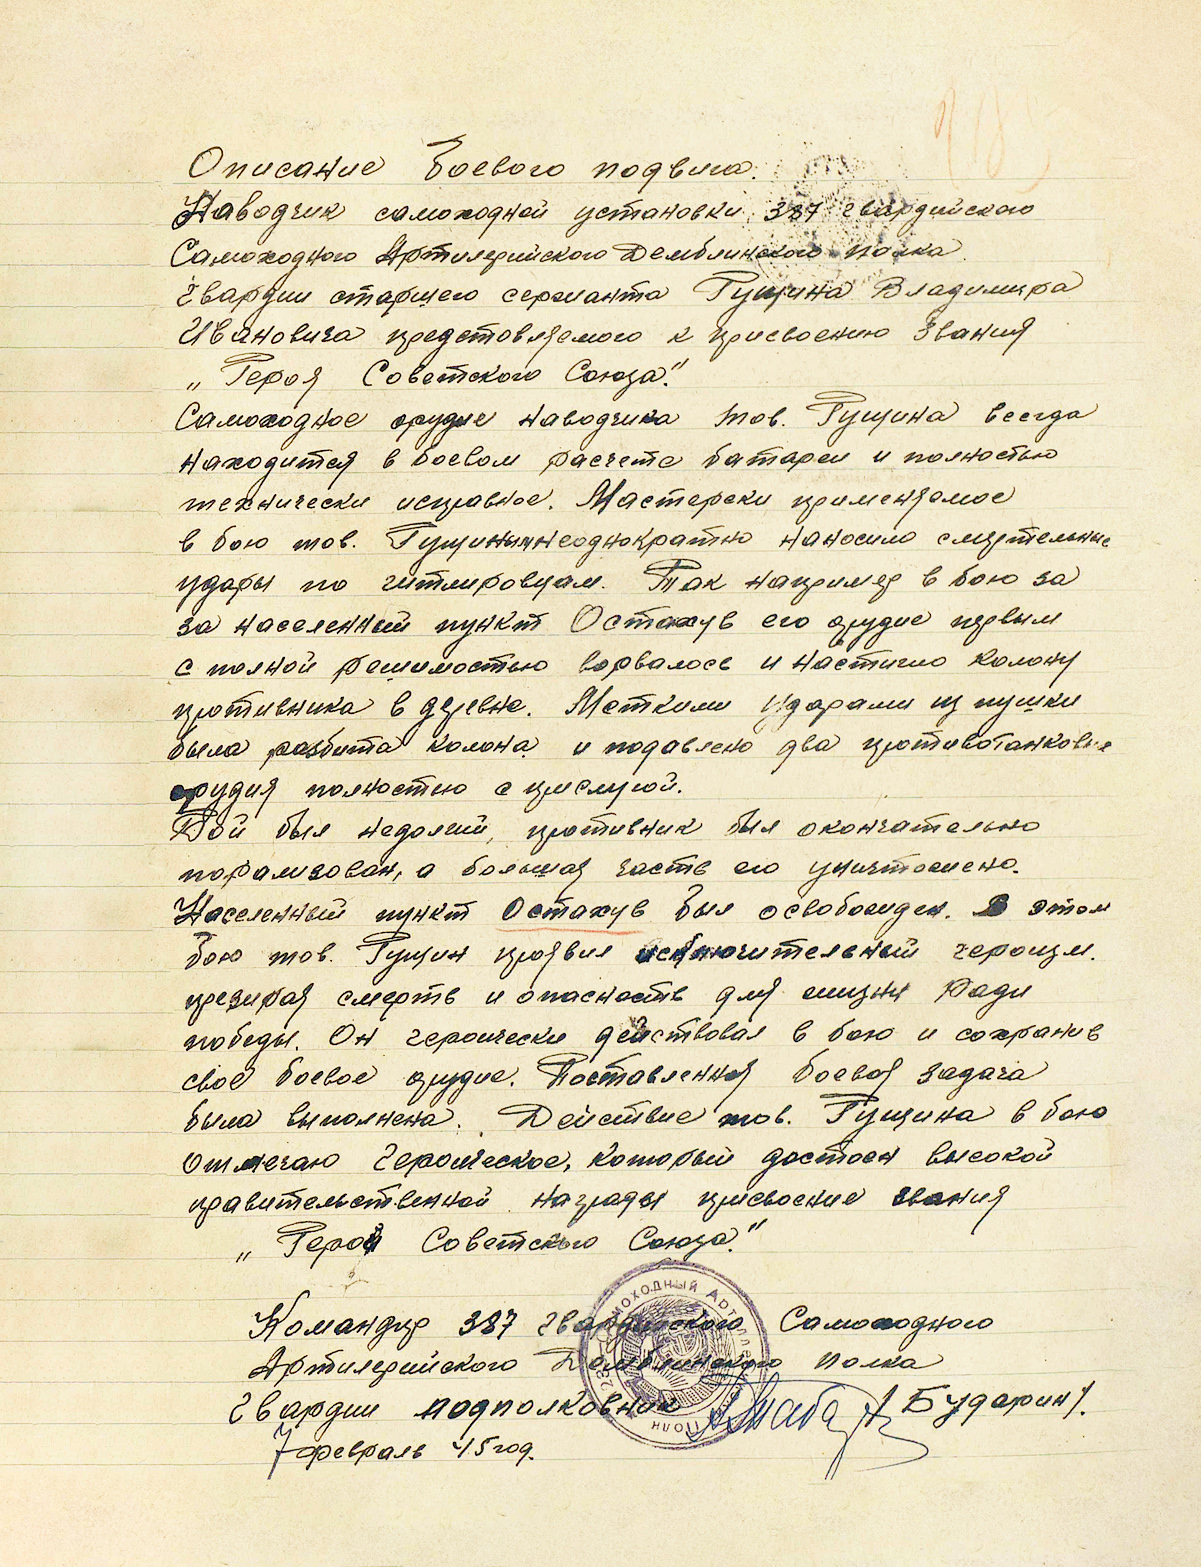 Описание боевого подвига.
Наводчик самоходной установки 387 гвардийского
Самоходного Артилерийского Демблинского полка
гвардии старшего сержанта Гущина Владимира
Ивановича представляемого к присвоению звания
„Героя Советского Союза".
Самоходное орудие наводчика тов. Гущина всегда
находится в боевом расчете батареи и полностью
технически исправное. Мастерски применяемое
в бою тов. Гущиным неоднократно наносило смертельные
удары по гитлеровцам. Так например в бою за
за населенный пункт Остахув его орудие первым
с полной решимостью ворвалось и настигло колону
противника в деревне. Меткими ударами из пушки
была разбита колона и подавлено два противотанковые
орудия полностью с прислугой.
Бой был недолгий, противник был окончательно
парализован, а большая часть его уничтожена.
Населенный пункт Остахув был освобожден. В этом
бою тов. Гущин проявил исключительный героизм.
презирая смерть и опасность для жизни ради
победы. Он героически действовал в бою и сохранив
свое боевое орудие. Поставленная боевая задача
была выполнена. Действие тов. Гущина в бою
отмечаю героическое, который достоен высокой
правительственной награды присвоение звания
„Героя Советского Союза".
Командир 387 гвардийского Самоходного
Артилерийского Демблинского полка
Гвардии подполковник /Бударин/.
7 февраль 45 год.